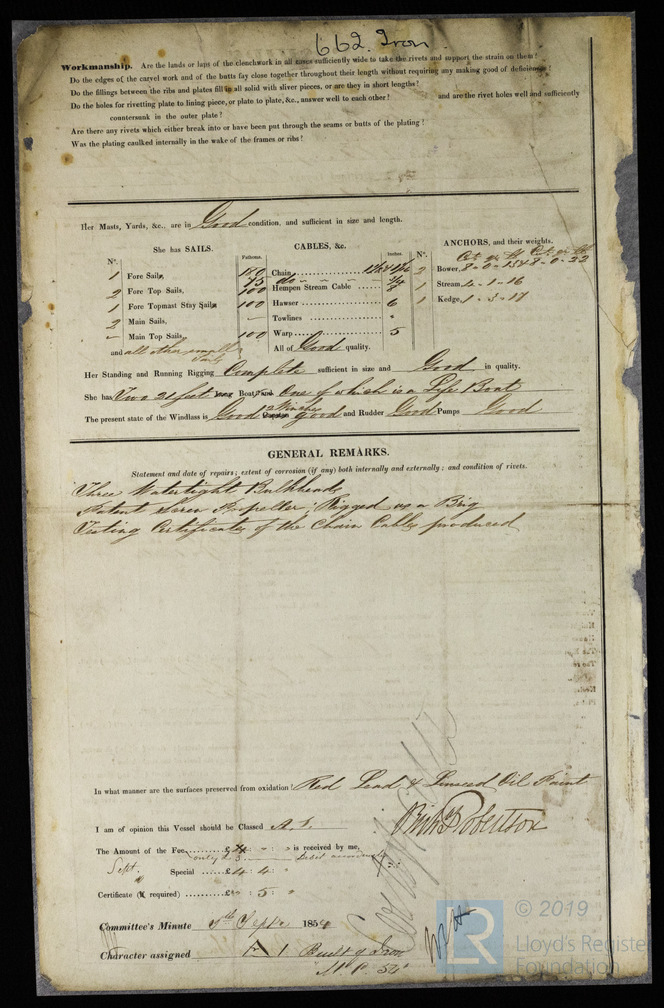 662. Iron
Workmanship. Are the lands or laps of the clenchwork in all cases sufficiently wide to take the rivets and support the strain on them?
Do the edges of the carvel work and of the butts fay close together throughout their length without requiring any making good of deficiencies?
Do the fillings between the ribs and plates fill in all solid with sliver pieces, or are they in short lengths?
Do the holes for rivetting plate to lining piece, or plate to plate, &c., answer well to each other? and are the rivet holes well and sufficiently
countersunk in the outer plate?
Are there any rivets which either break into or have been put through the seams or butts of the plating?
Was the plating caulked internally in the wake of the frames or ribs?
Her Masts, Yards, &c., are in Good condition, and sufficient in size and length.
She has SAILS. CABLES, &c. ANCHORS, and their weights.
N°. Fathoms. Inches. N°.
1 Fore Sails, Chain
2 Fore Top Sails, 75 Hempen Stream Cable
1 Fore Topmast Stay Sails 100 Hawser 6
2 Main Sails, – Towlines "
– Main Top Sails, 100 Warp 5
2 Bower, 8-0-15 & 8-0-22
1 Stream 4-1-16
1 Kedge, 1-3-17
and all other small sails All of Good quality.
Her Standing and Running Rigging Complete sufficient in size and Good in quality.
She has Two 21 feet Long Boats, and One of which is a Life Boat
The present state of the Windlass is Good Capstan 2 Winches good and Rudder Good Pumps Good
GENERAL REMARKS.
Statement and date of repairs; extent of corrosion (if any) both internally and externally; and condition of rivets.
Three Watertight Bulkheads
Patent Screw Propeller; Rigged as a Brig
Testing Certificates of the Chain Cables produced
In what manner are the surfaces preserved from oxidation? Red Lead & Linseed Oil Paint
I am of opinion this Vessel should be Classed A.1.
Robertson
The Amount of the Fee £ is received by me,
Sept. Special £4 : 4 : "
Certificate (if required) £ : 5 : "
Committee's Minute Septr 185
Character assigned A 1 Built of Iron
M.C. 54
© 2019
LR
Lloyd's Register
Foundation